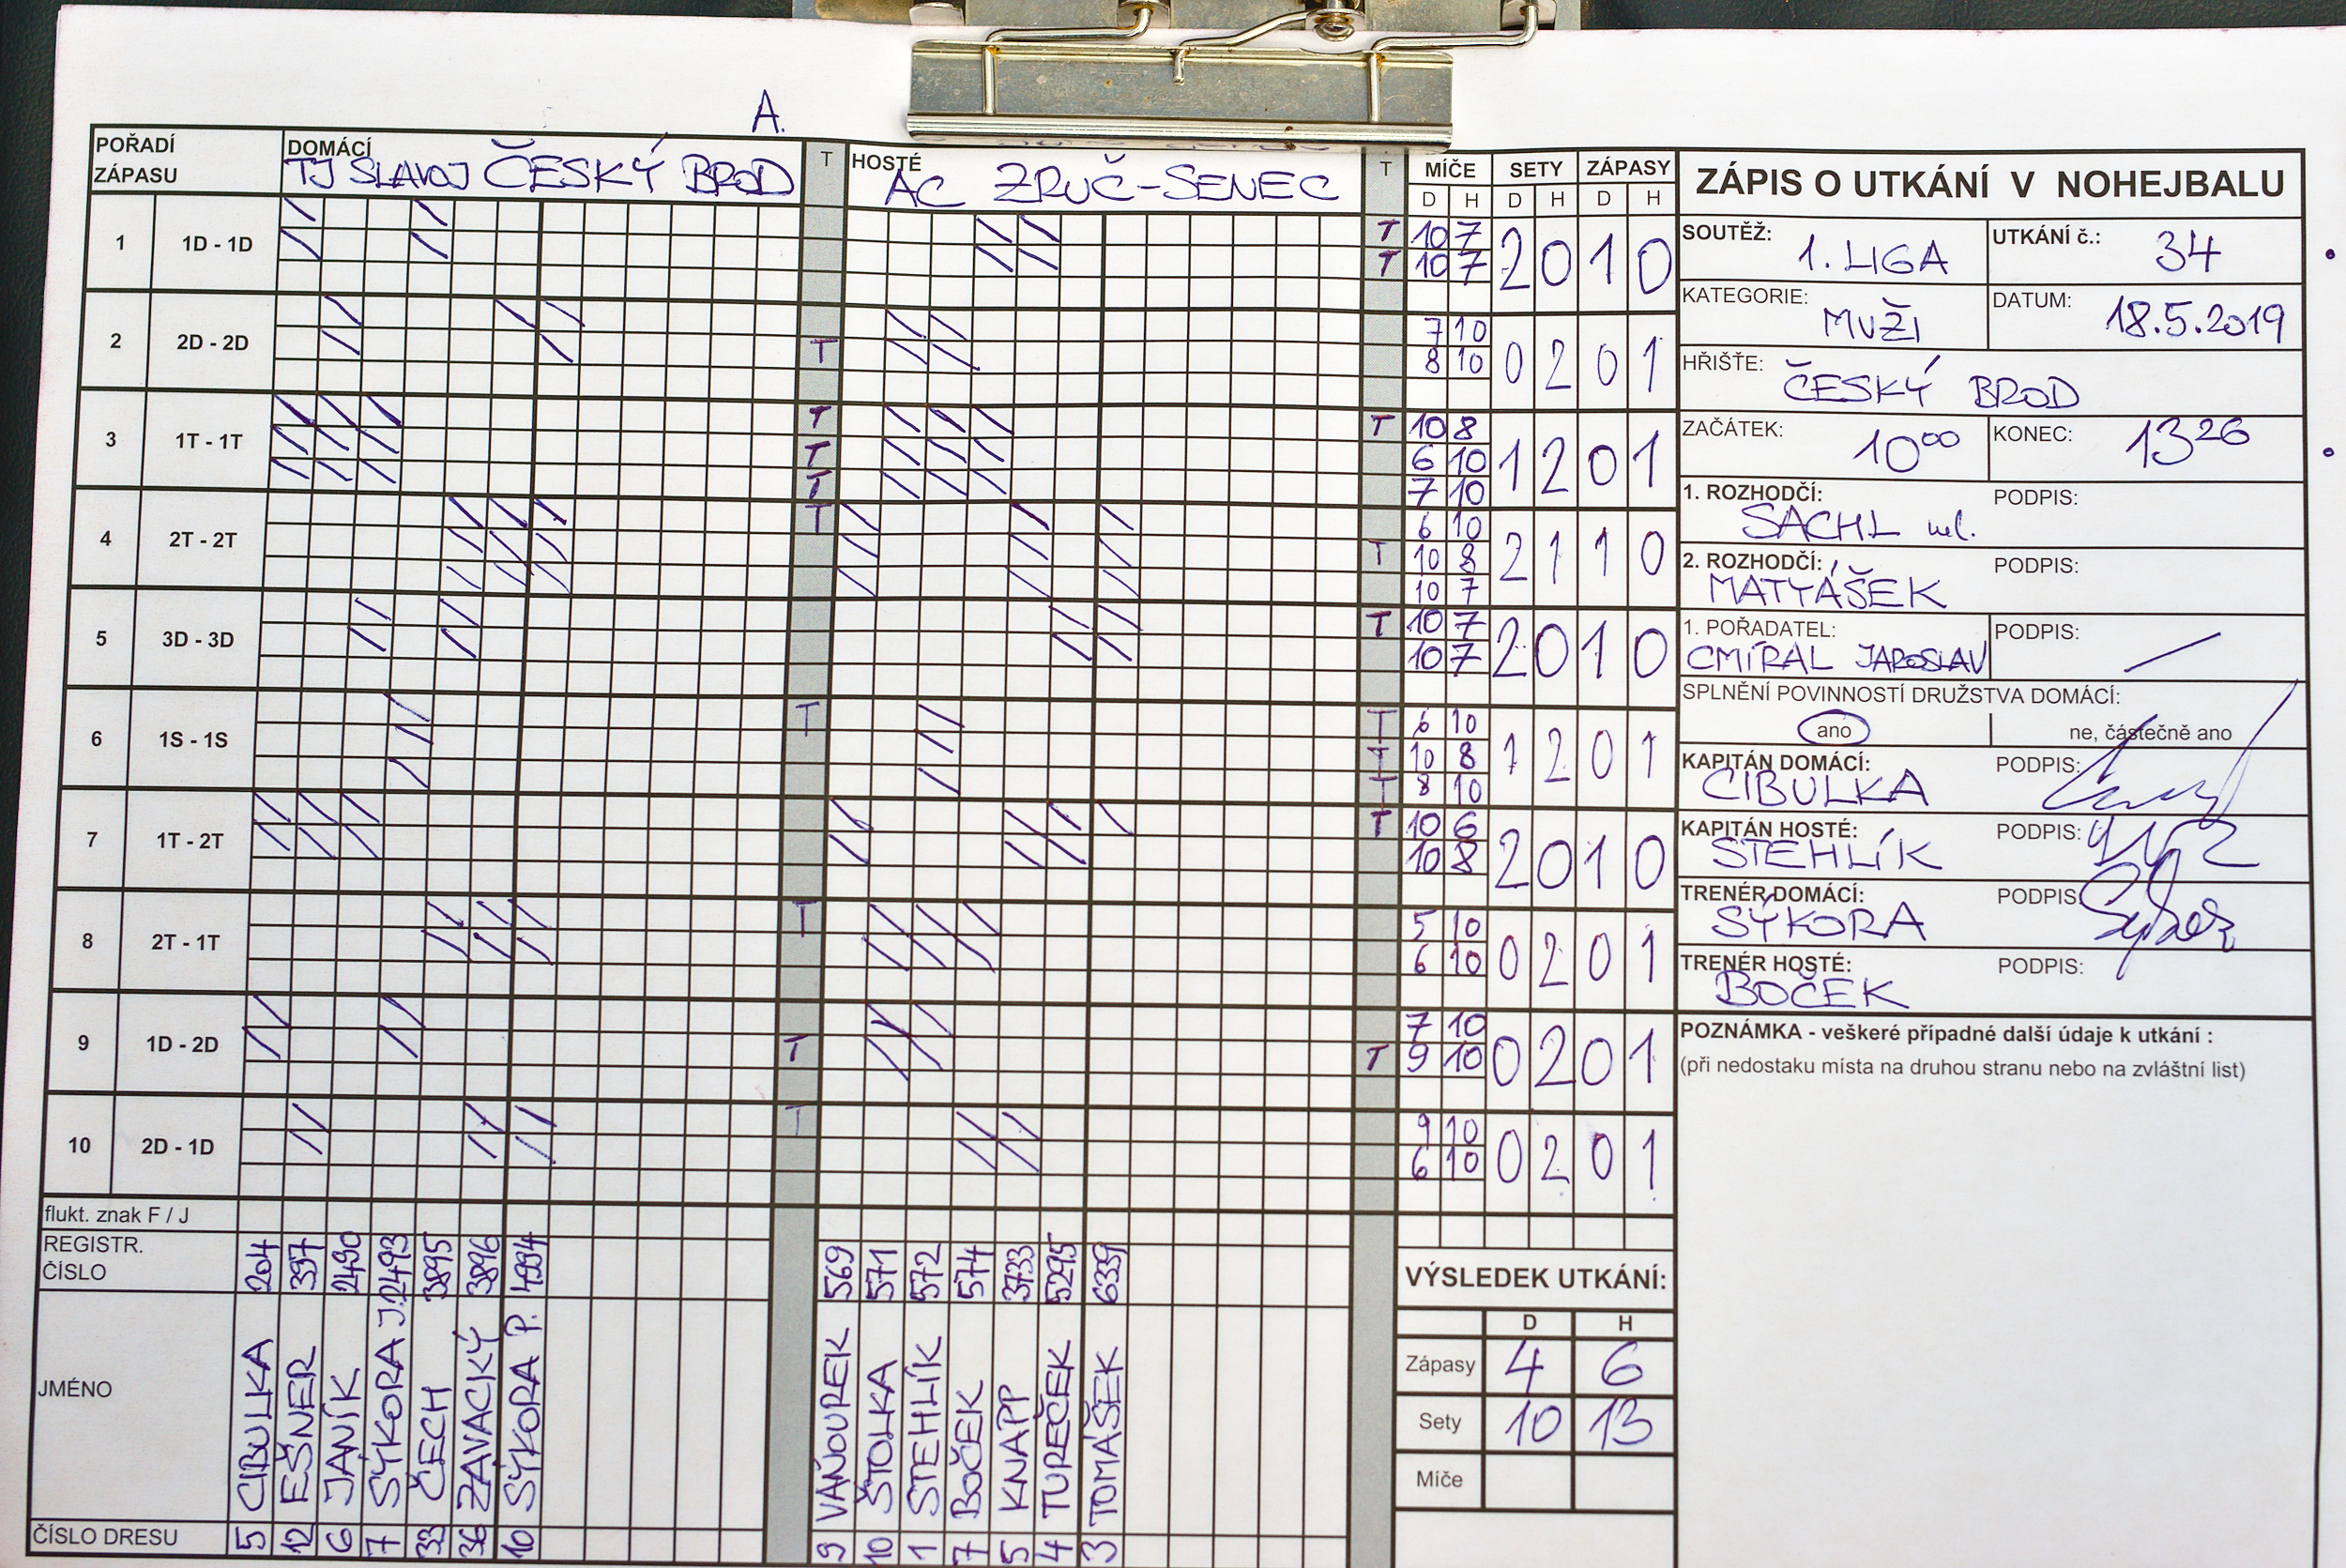 A.
POŘADÍ ZÁPASU
DOMÁCÍ
TJ SLAVOJ ČESKÝ BROD
T
HOSTÉ
AC ZRUČ-SENEC
T
MÍČE SETY ZÁPASY
D H D H D H
1 1D - 1D T 10 7 2 0 1 0
T 10 7
2 2D - 2D 7 10 0 2 0 1
T 8 10
3 1T - 1T T T 10 8 1 2 0 1
T 6 10
T 7 10
4 2T - 2T T 6 10 2 1 1 0
T 10 8
10 7
5 3D - 3D T 10 7 2 0 1 0
10 7
6 1S - 1S T T 6 10 1 2 0 1
T 10 8
T 8 10
7 1T - 2T T 10 6 2 0 1 0
10 8
8 2T - 1T T 5 10 0 2 0 1
6 10
9 1D - 2D 7 10 0 2 0 1
T T 9 10
10 2D - 1D T 9 10 0 2 0 1
6 10
flukt. znak F / J
REGISTR. ČÍSLO
204 397 2490 2493 3895 3896 4994
569 571 572 574 3733 5295 6339
JMÉNO
CIBULKA EŠNER JANÍK SÝKORA J. ČECH ZÁVACKÝ SÝKORA P.
VAŇOUREK ŠTOLKA STEHLÍK BOČEK KNAPP TUREČEK TOMÁŠEK
ČÍSLO DRESU
5 12 6 7 33 36 10
9 10 1 7 5 4 3
VÝSLEDEK UTKÁNÍ:
D H
Zápasy 4 6
Sety 10 13
Míče
ZÁPIS O UTKÁNÍ V NOHEJBALU
SOUTĚŽ: 1. LIGA
UTKÁNÍ č.: 34
KATEGORIE: MUŽI
DATUM: 18.5.2019
HŘIŠTĚ: ČESKÝ BROD
ZAČÁTEK: 10 00
KONEC: 13 26
1. ROZHODČÍ: PODPIS:
SACHL ml.
2. ROZHODČÍ: PODPIS:
MATYÁŠEK
1. POŘADATEL: PODPIS:
CMÍRAL JAROSLAV
SPLNĚNÍ POVINNOSTÍ DRUŽSTVA DOMÁCÍ:
ano ne, částečně ano
KAPITÁN DOMÁCÍ: PODPIS:
CIBULKA
KAPITÁN HOSTÉ: PODPIS:
STEHLÍK
TRENÉR DOMÁCÍ: PODPIS:
SÝKORA
TRENÉR HOSTÉ: PODPIS:
BOČEK
POZNÁMKA - veškeré případné další údaje k utkání :
(při nedostaku místa na druhou stranu nebo na zvláštní list)